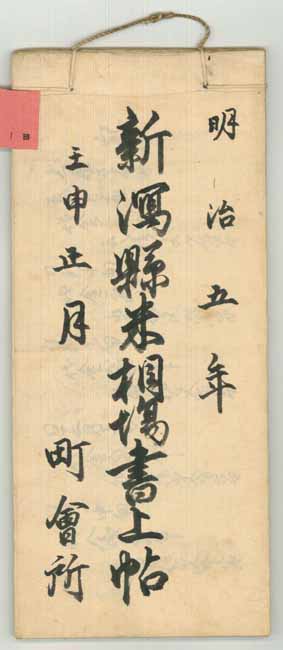 明治五年
新潟縣米相場書上帖
壬申正月
町會所